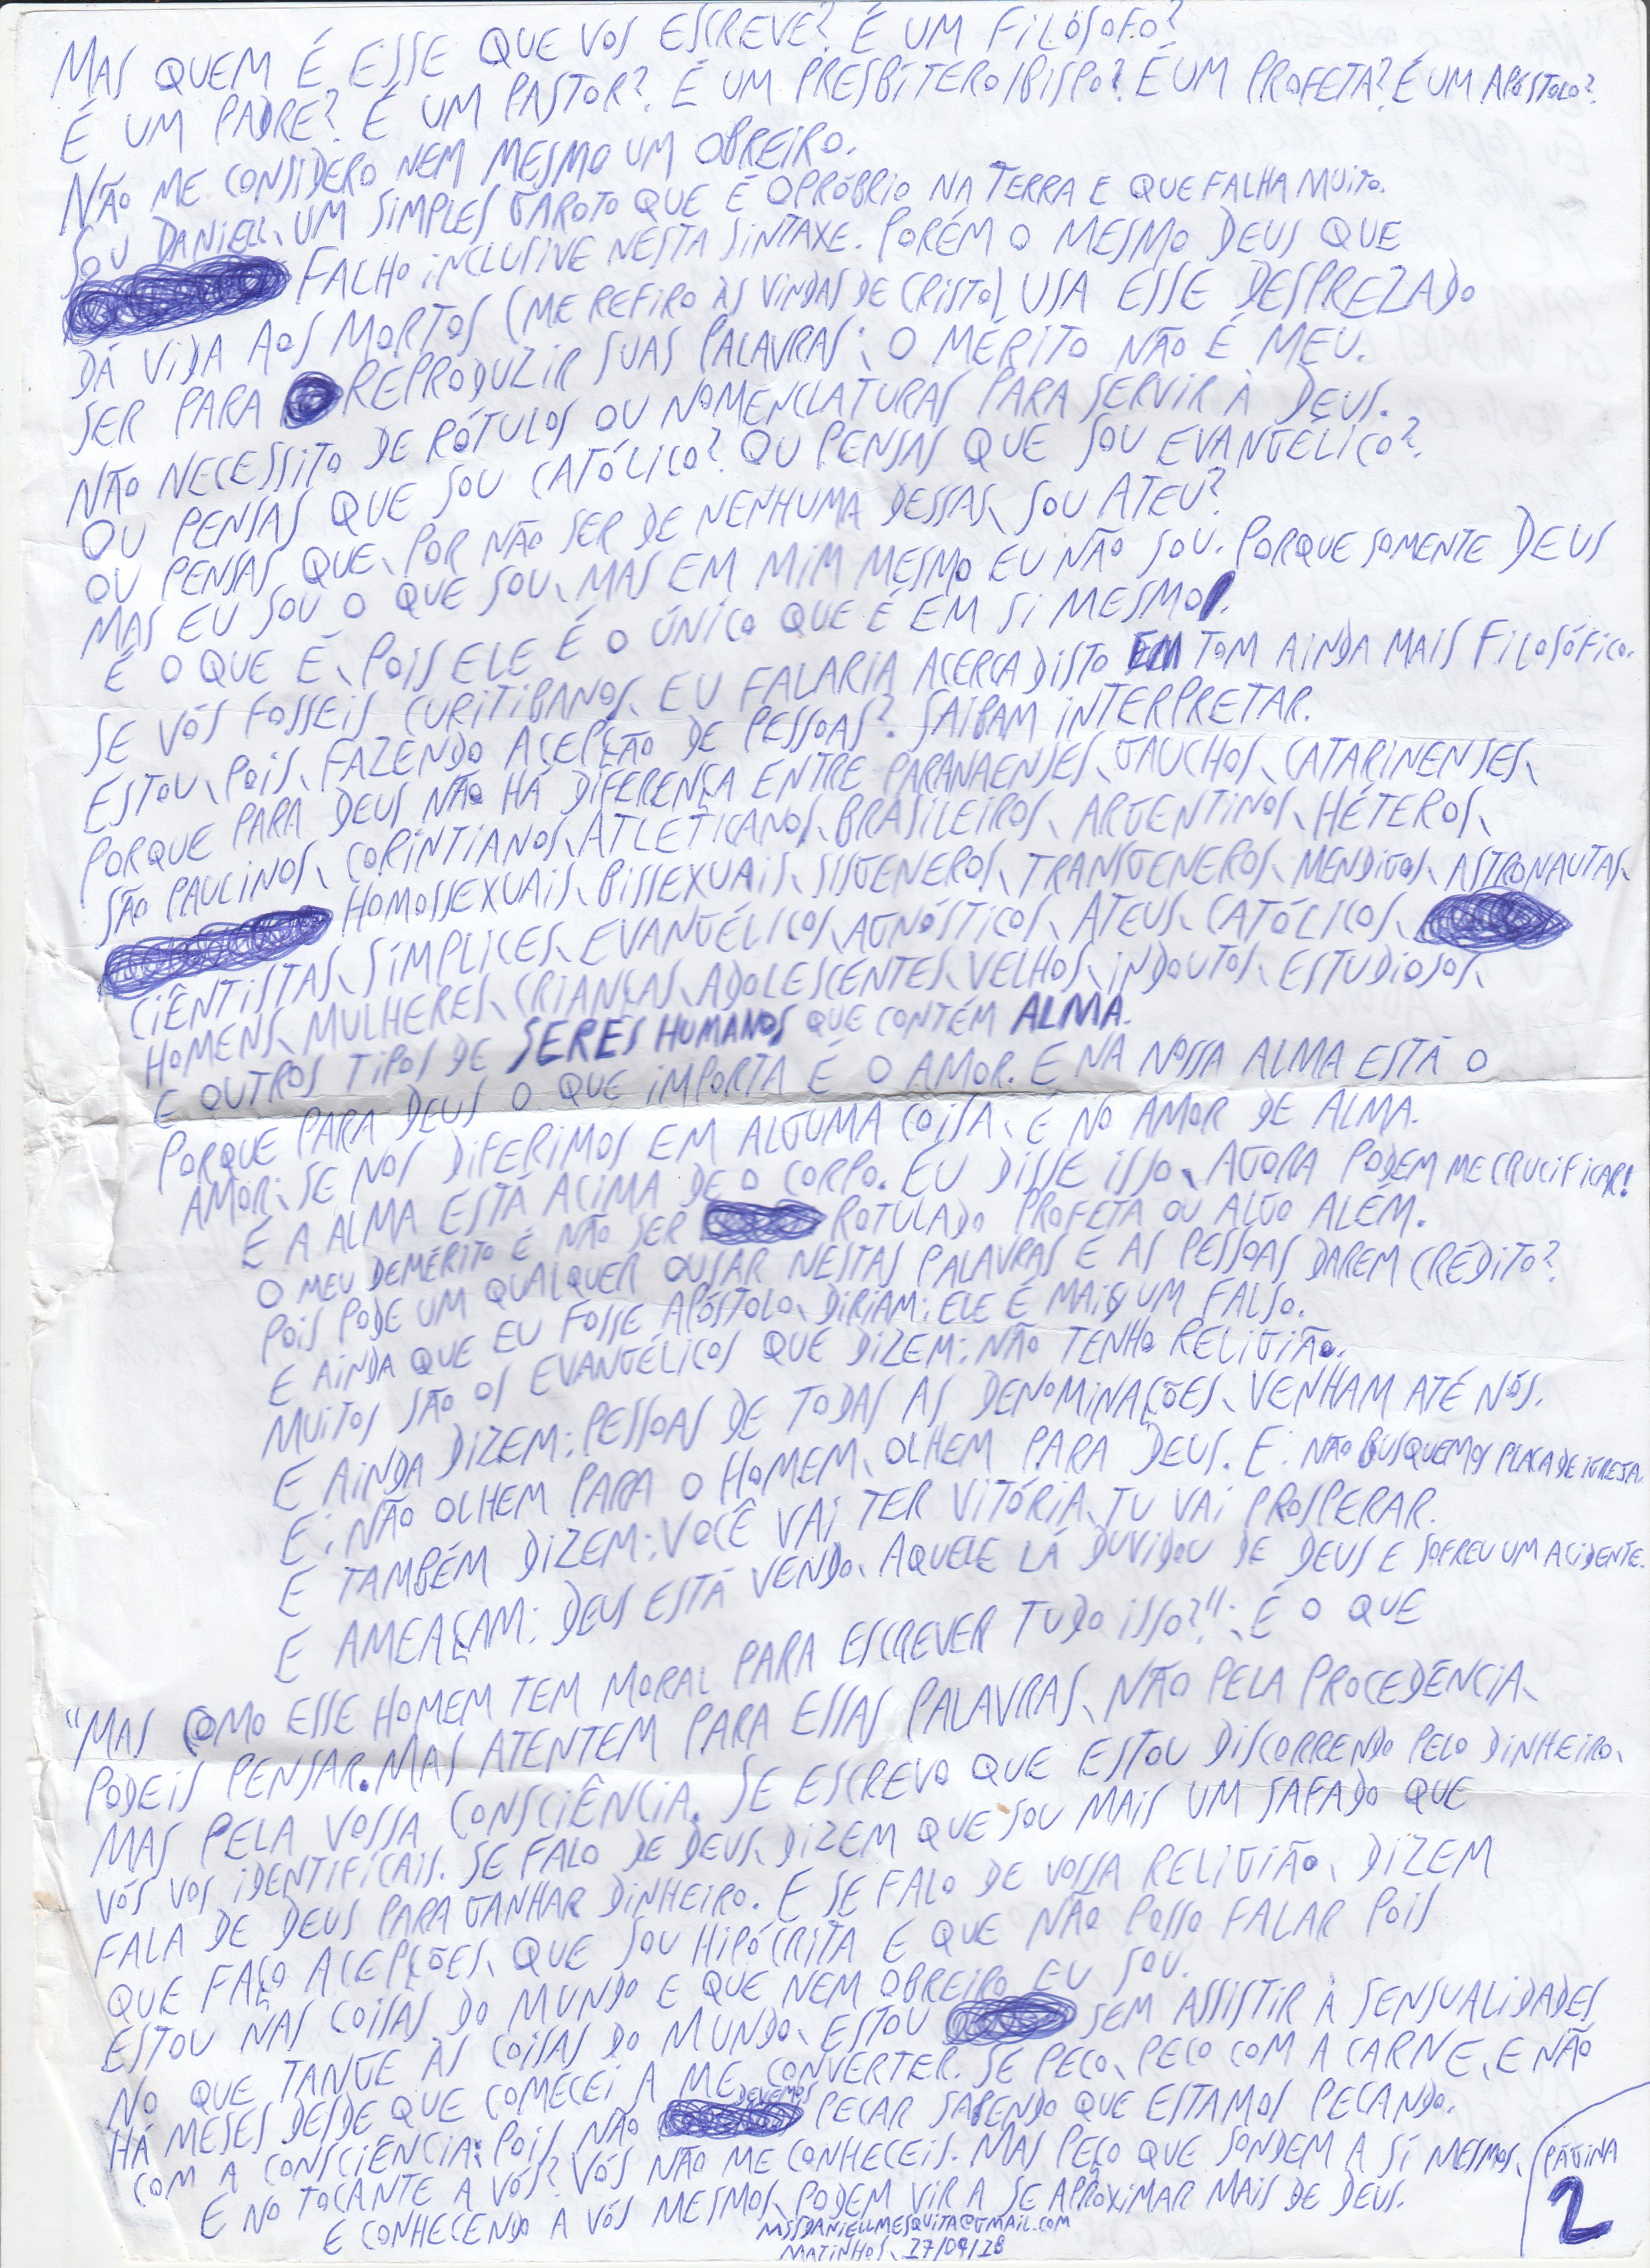 MAS QUEM É ESSE QUE VOS ESCREVE? É UM FILÓSOFO?
É UM PADRE? É UM PASTOR? É UM PRESBÍTERO/BISPO? É UM PROFETA? É UM APÓSTOLO?
NÃO ME CONSIDERO NEM MESMO UM OBREIRO.
SOU DANIELL, UM SIMPLES GAROTO QUE É OPRÓBRIO NA TERRA E QUE FALHA MUITO.
FALHO INCLUSIVE NESTA SINTAXE. PORÉM O MESMO DEUS QUE
DÁ VIDA AOS MORTOS (ME REFIRO ÀS VINDAS DE CRISTO) USA ESSE DESPREZADO
SER PARA REPRODUZIR SUAS PALAVRAS; O MÉRITO NÃO É MEU.
NÃO NECESSITO DE RÓTULOS OU NOMENCLATURAS PARA SERVIR À DEUS.
OU PENSAS QUE SOU CATÓLICO? OU PENSAS QUE SOU EVANGÉLICO?
OU PENSAS QUE, POR NÃO SER DE NENHUMA DESSAS, SOU ATEU?
MAS EU SOU O QUE SOU, MAS EM MIM MESMO EU NÃO SOU. PORQUE SOMENTE DEUS
É O QUE É, POIS ELE É O ÚNICO QUE É EM SI MESMO.
SE VÓS FOSSEIS CURITIBANOS, EU FALARIA ACERCA DISTO EM TOM AINDA MAIS FILOSÓFICO.
ESTOU, POIS, FAZENDO ACEPÇÃO DE PESSOAS? SAIBAM INTERPRETAR.
PORQUE PARA DEUS NÃO HÁ DIFERENÇA ENTRE PARANAENSES, GAUCHOS, CATARINENSES,
SÃO PAULINOS, CORINTIANOS, ATLETICANOS, BRASILEIROS, ARGENTINOS, HÉTEROS,
HOMOSSEXUAIS, BISSEXUAIS, SISGENEROS, TRANSGENEROS, MENDIGOS, ASTRONAUTAS,
CIÊNTISTAS, SÍMPLICES, EVANGÉLICOS, AGNÓSTICOS, ATEUS, CATÓLICOS,
HOMENS, MULHERES, CRIANÇAS, ADOLESCENTES, VELHOS, INDOUTOS, ESTUDIOSOS,
E OUTROS TIPOS DE SERES HUMANOS QUE CONTÉM ALMA.
PORQUE PARA DEUS O QUE IMPORTA É O AMOR. E NA NOSSA ALMA ESTÁ O
AMOR; SE NOS DIFERIMOS EM ALGUMA COISA, É NO AMOR DE ALMA.
E A ALMA ESTÁ ACIMA DE O CORPO. EU DISSE ISSO, AGORA PODEM ME CRUCIFICAR!
O MEU DEMÉRITO É NÃO SER ROTULADO PROFETA OU ALGO ALÉM.
POIS PODE UM QUALQUER OUSAR NESTAS PALAVRAS E AS PESSOAS DAREM CRÉDITO?
E AINDA QUE EU FOSSE APÓSTOLO, DIRIAM: ELE É MAIS UM FALSO.
MUITOS SÃO OS EVANGÉLICOS QUE DIZEM: NÃO TENHO RELIGIÃO.
E AINDA DIZEM: PESSOAS DE TODAS AS DENOMINAÇÕES, VENHAM ATÉ NÓS.
E: NÃO OLHEM PARA O HOMEM, OLHEM PARA DEUS. E: NÃO BUSQUEMOS PLACA DE IGREJA.
E TAMBÉM DIZEM: VOCÊ VAI TER VITÓRIA, TU VAI PROSPERAR.
E AMEAÇAM: DEUS ESTÁ VENDO, AQUELE LÁ DUVIDOU DE DEUS E SOFREU UM ACIDENTE.
"MAS COMO ESSE HOMEM TEM MORAL PARA ESCREVER TUDO ISSO?"; É O QUE
PODEIS PENSAR. MAS ATENTEM PARA ESSAS PALAVRAS, NÃO PELA PROCEDÊNCIA,
MAS PELA VOSSA CONSCIÊNCIA. SE ESCREVO QUE ESTOU DISCORRENDO PELO DINHEIRO,
VÓS VOS IDENTIFICAIS. SE FALO DE DEUS, DIZEM QUE SOU MAIS UM SAFADO QUE
FALA DE DEUS PARA GANHAR DINHEIRO. E SE FALO DE VOSSA RELIGIÃO, DIZEM
QUE FAÇO ACEPÇÕES, QUE SOU HIPÓCRITA E QUE NÃO POSSO FALAR POIS
ESTOU NAS COISAS DO MUNDO E QUE NEM OBREIRO EU SOU.
NO QUE TANGE ÀS COISAS DO MUNDO, ESTOU SEM ASSISTIR À SENSUALIDADES
HÁ MESES DESDE QUE COMECEI A ME CONVERTER. SE PECO, PECO COM A CARNE, E NÃO
COM A CONSCIÊNCIA; POIS NÃO DEVEMOS PECAR SABENDO QUE ESTAMOS PECANDO.
E NO TOCANTE A VÓS? VÓS NÃO ME CONHECEIS. MAS PEÇO QUE SONDEM A SI MESMOS,
E CONHECENDO A VÓS MESMOS, PODEM VIR A SE APROXIMAR MAIS DE DEUS.
MSSDANIELLMESQUITA@GMAIL.COM
MATINHOS, 27/04/18
PÁGINA
2